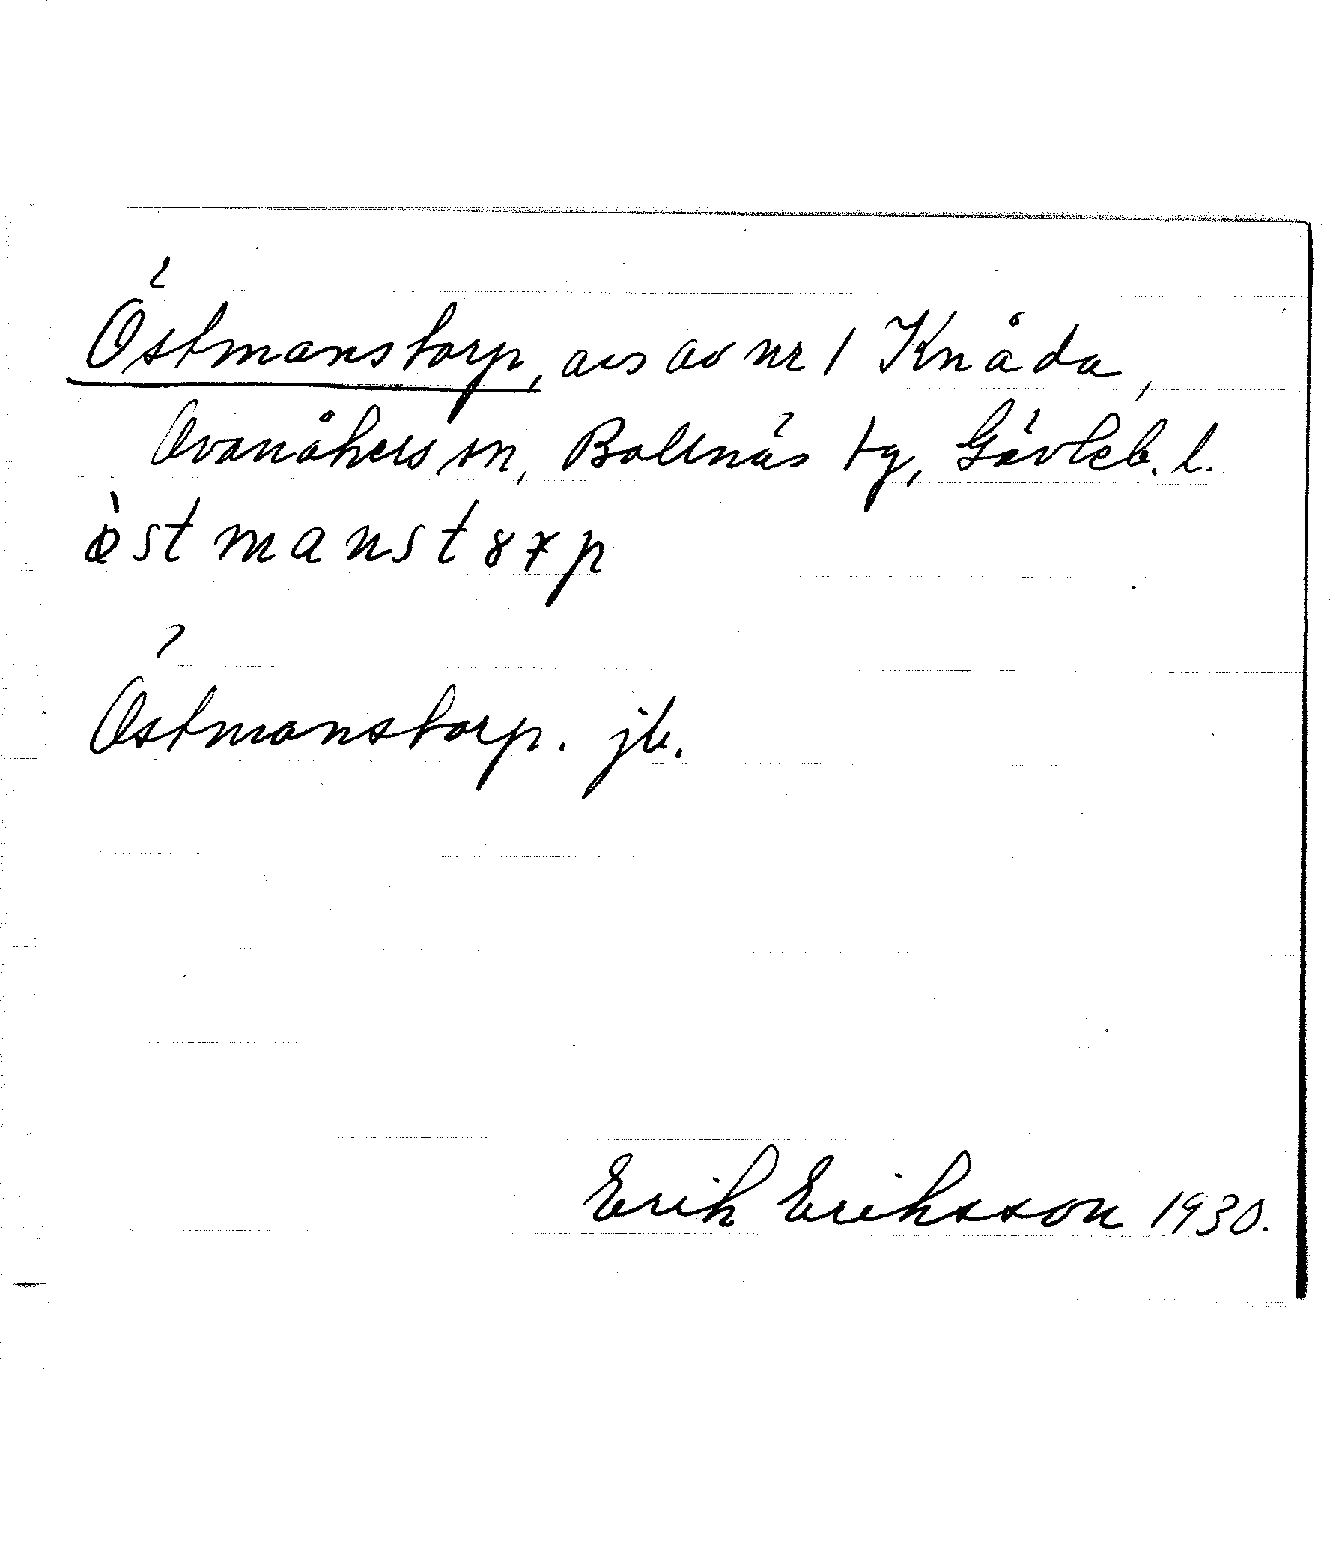 Östmanstorp, avs av nr 1 Knåda,
Ovanåkers sn, Bollnäs tg, Gävleb. l.
Östmanstorp. jb.
Erik Eriksson 1930.